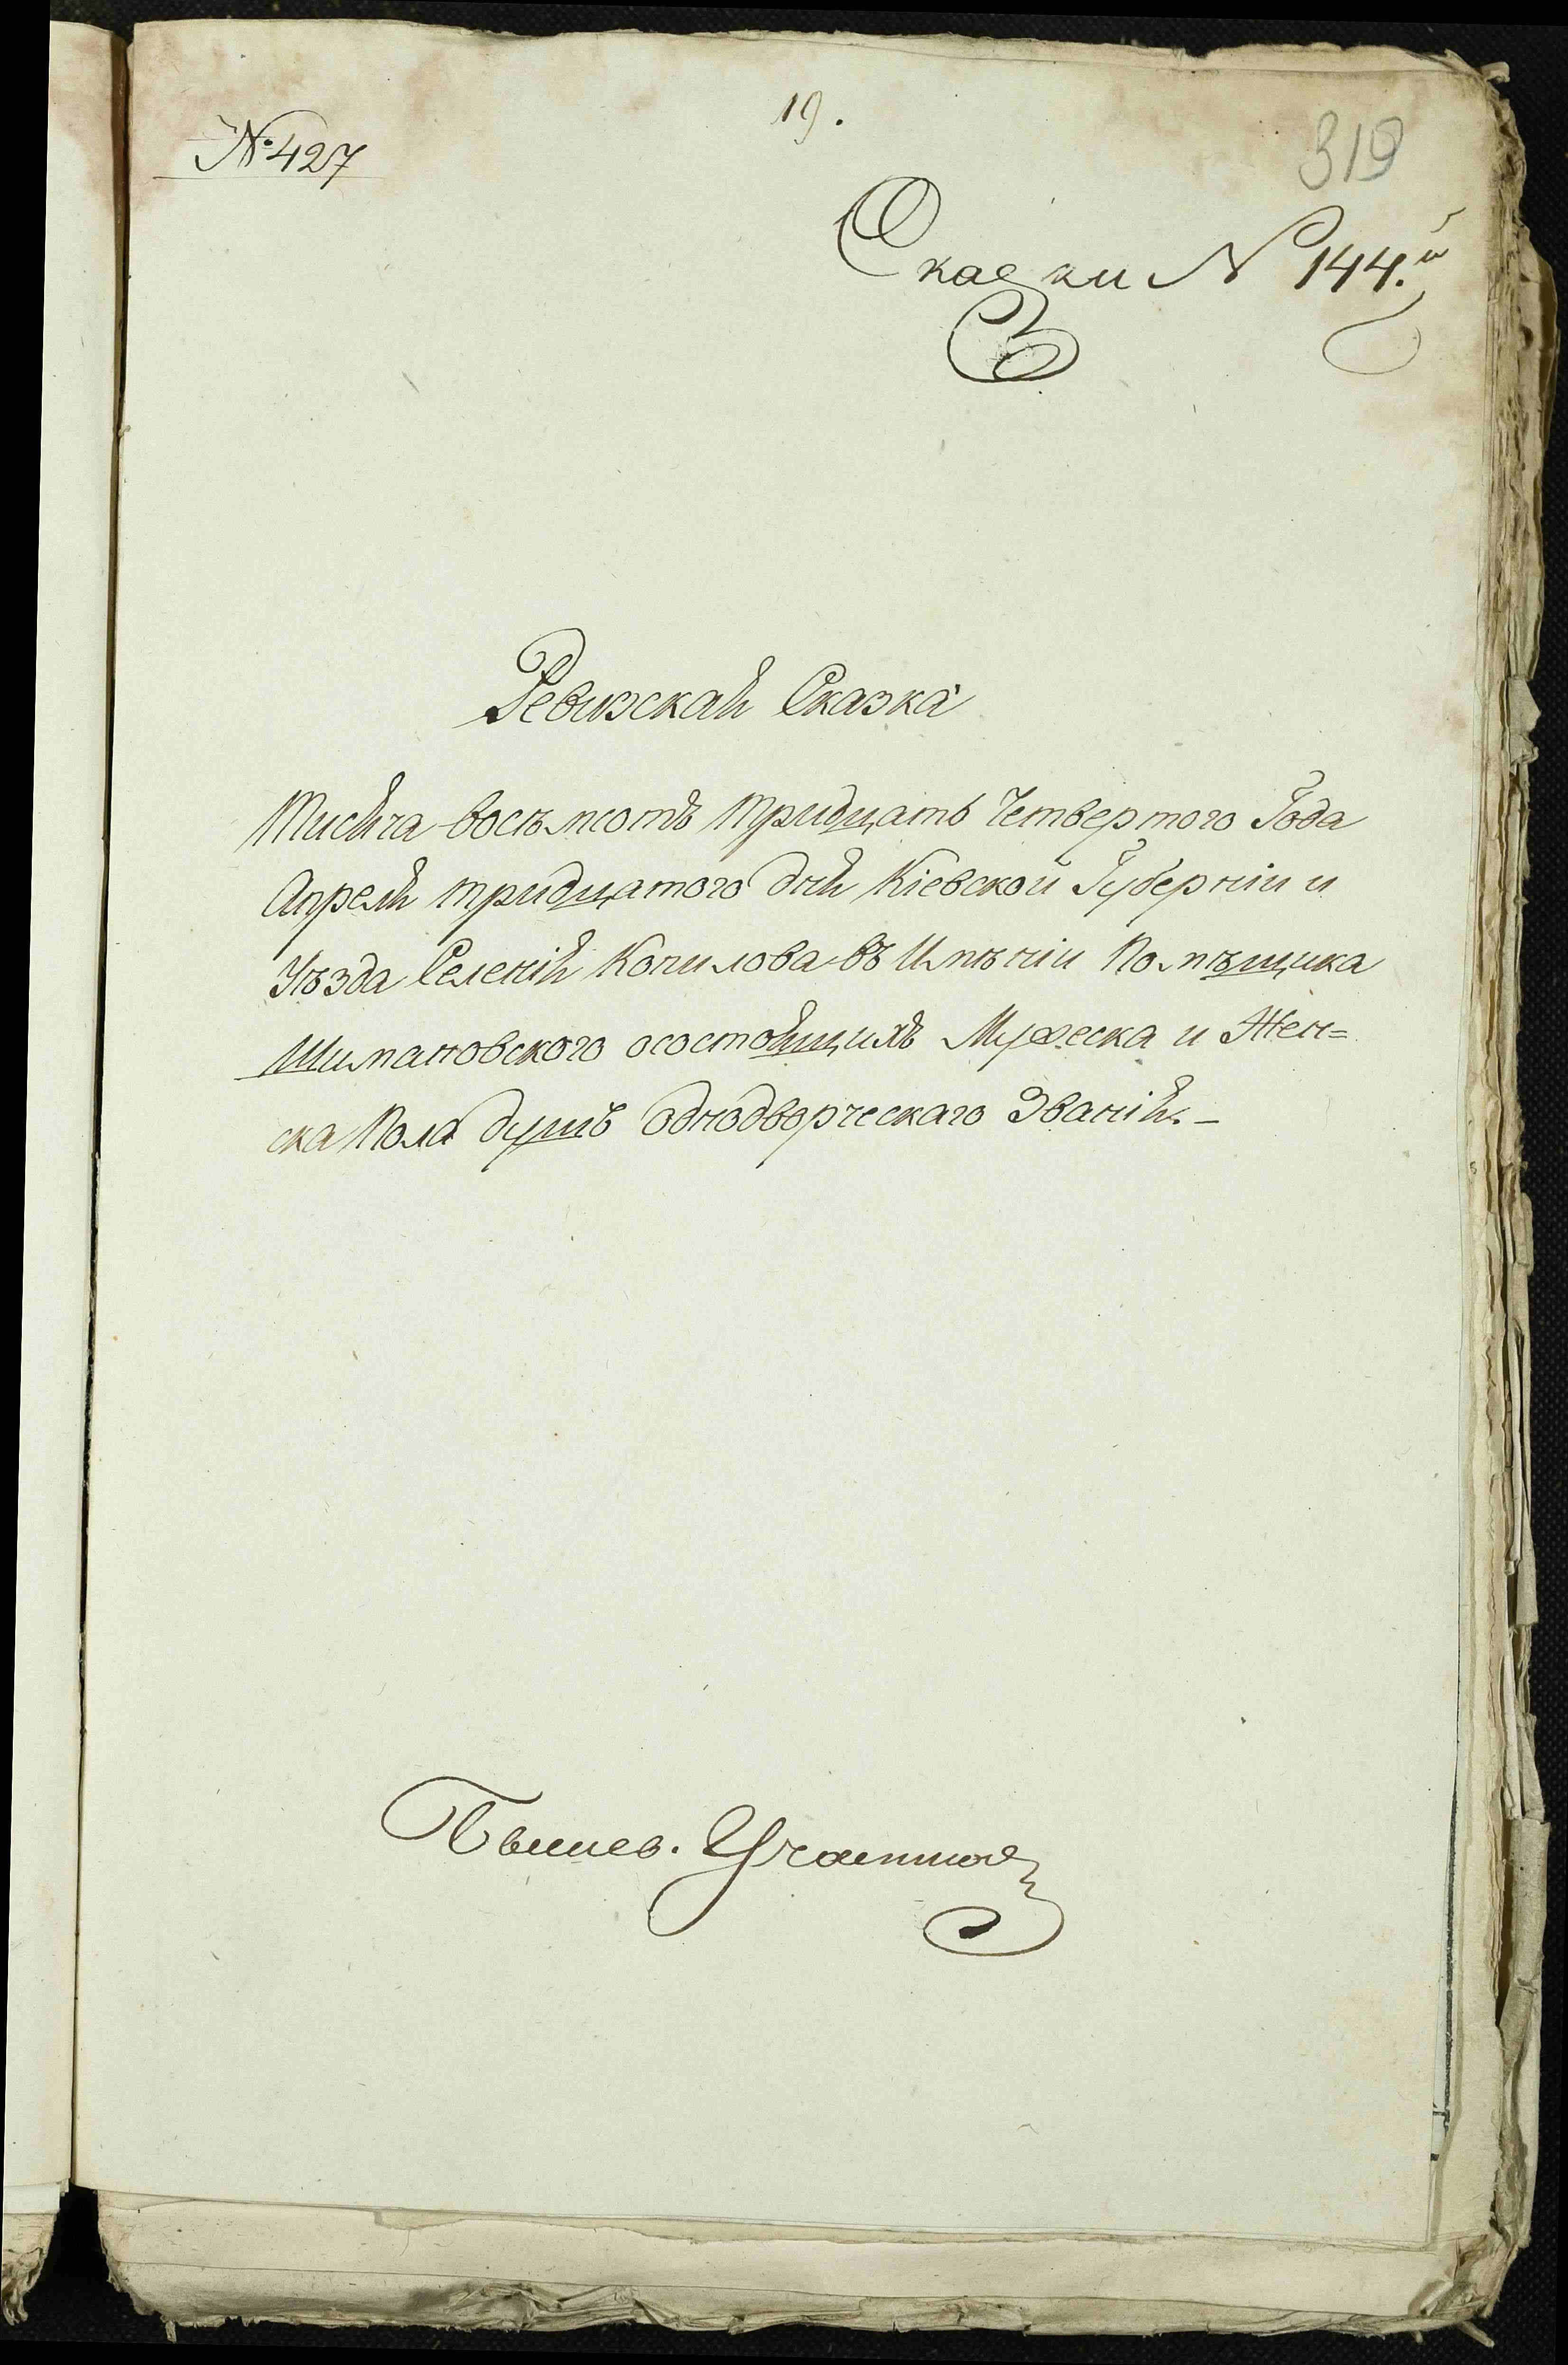 19.
№ 427
319
Сказки № 144.й
Ревизская Сказка
Тисяча восъмсотъ тридцать Четвертого Года
Апреля тридцатого дня Кіевской Губерніи и
Уѣзда Селенія Копилова въ Имѣніи Помѣщика
Шимановского осостоящихъ Мужеска и Жен=
ска Пола душъ Однодворческаго Званія.-